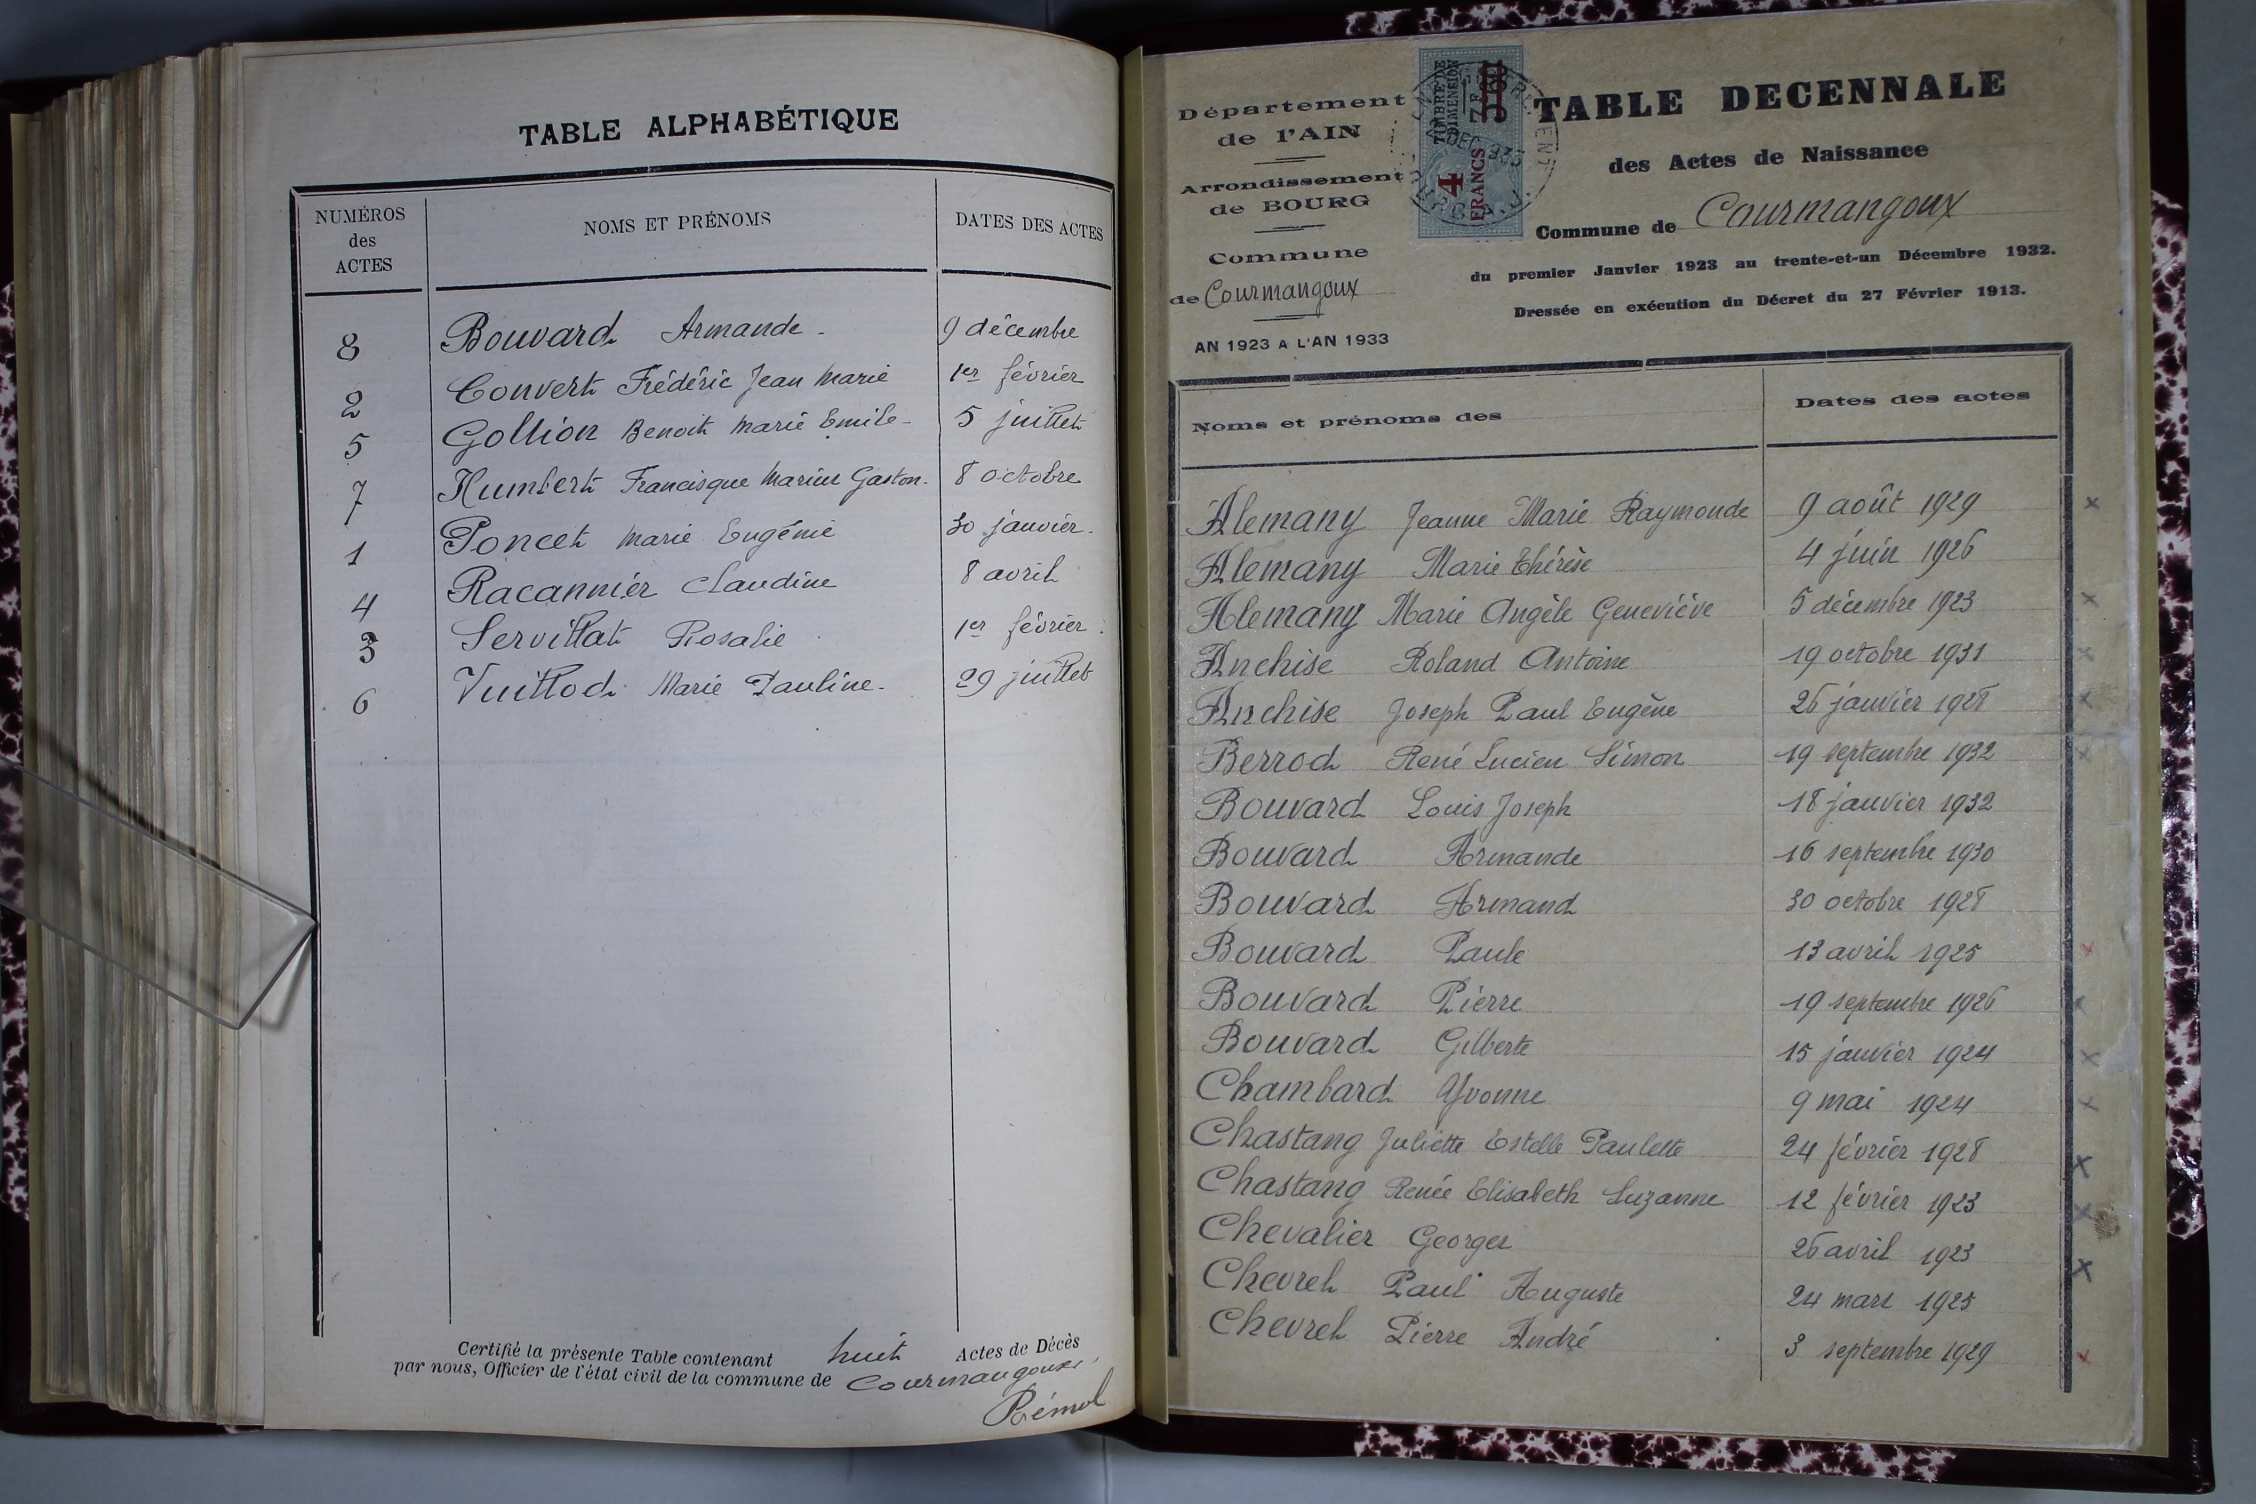 TABLE ALPHABÉTIQUE
NUMÉROS des ACTES NOMS ET PRÉNOMS DATES DES ACTES
8 Bouvard Armande 9 décembre
2 Convert Frédéric Jean Marie 1er février
5 Gollion Benoit Marie Emile 5 juillet
7 Humbert Francisque Marius Gaston 8 octobre
1 Poncet Marie Eugénie 30 janvier
4 Racannier Claudine 8 avril
3 Servillat Rosalie 1er février
6 Vuillod Marie Pauline 29 juillet
Certifié la présente Table contenant huit Actes de Décès
par nous, Officier de l'état civil de la commune de Courmangoux
Département
de l'AIN
Arrondissement
de BOURG
Commune
de Courmangoux
AN 1923 A L'AN 1933
TIMBRE DE
DIMENSION
4 FRANCS
TABLE DECENNALE
des Actes de Naissance
Commune de Courmangoux
du premier Janvier 1923 au trente-et-un Décembre 1932.
Dressée en exécution du Décret du 27 Février 1913.
Noms et prénoms des Dates des actes
Alemany Jeanne Marie Raymonde 9 août 1929 x
Alemany Marie Thérèse 4 juin 1926
Alemany Marie Angèle Geneviève 5 décembre 1923 x
Anchise Roland Antoine 19 octobre 1931 x
Anchise Joseph Paul Eugène 26 janvier 1928 x
Berrod René Lucien Simon 19 septembre 1932 x
Bouvard Louis Joseph 18 janvier 1932
Bouvard Armande 16 septembre 1930
Bouvard Armand 30 octobre 1928
Bouvard Paule 13 avril 1925 x
Bouvard Pierre 19 septembre 1926 x
Bouvard Gilberte 15 janvier 1924 x
Chambard Yvonne 9 mai 1924 x
Chastang Juliette Estelle Paulette 24 février 1928 x
Chastang Renée Elisabeth Suzanne 12 février 1923 x
Chevalier Georges 26 avril 1923 x
Chevrel Paul Auguste 24 mars 1925
Chevrel Pierre André 3 septembre 1929 x